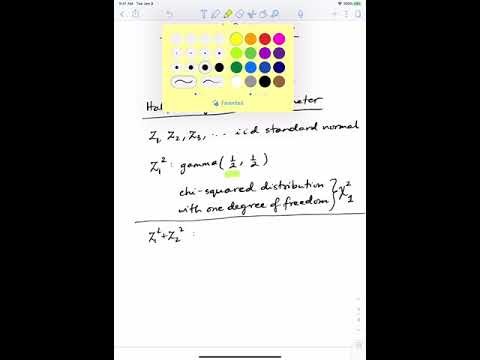 9:41 AM Tue Jan 9
Favorites
Hal meter
Z₁, Z₂, Z₃, ... iid standard normal
Z₁² : gamma(1/2, 1/2)
chi-squared distribution
with one degree of freedom } χ₁²
Z₁² + Z₂² :